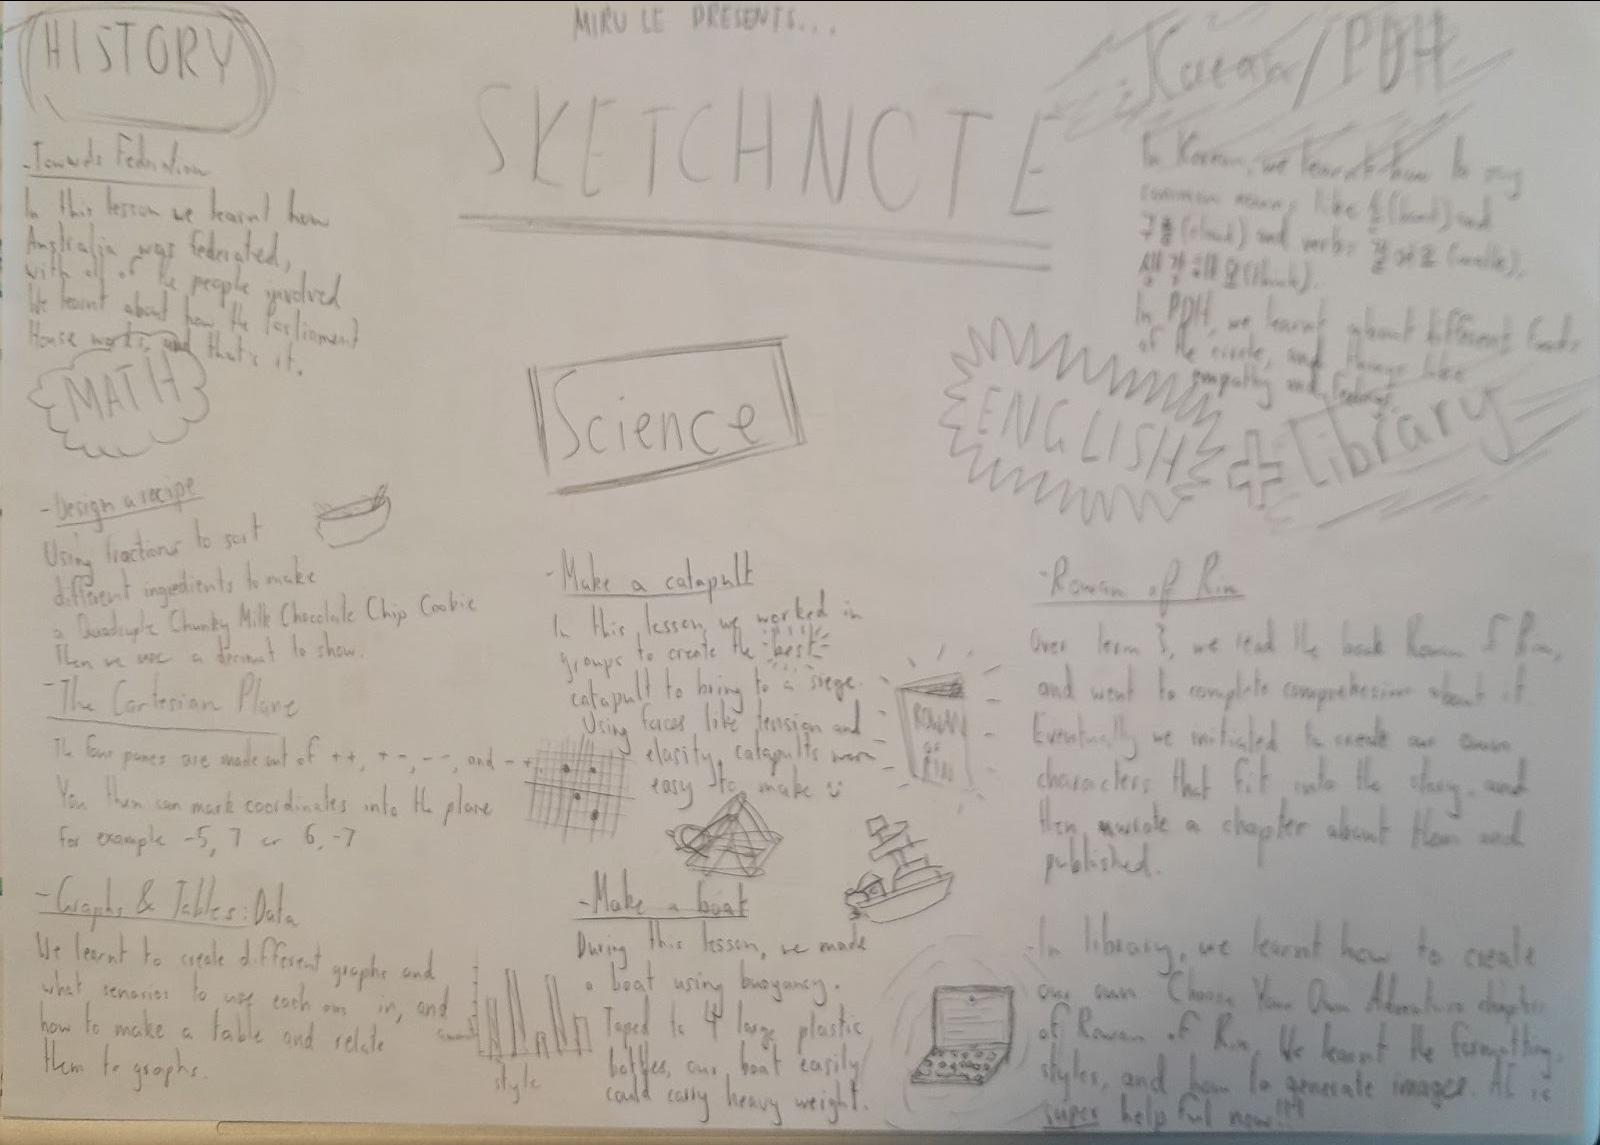 MIRU LE PRESENTS...
SKETCHNOTE
HISTORY
-Towards Federation
In this lesson we learnt how
Australia was federated,
with all of the people involved
We learnt about how the Parliament
House works, and that's it.
MATH
-Design a recipe
Using fractions to sort
different ingredients to make
a Quadruple Chunky Milk Chocolate Chip Cookie
Then we use a decimal to show.
-The Cartesian Plane
The four panes are made out of ++, +-, --, and -+.
You then can mark coordinates into the plane
for example -5, 7 or 6, -7
-Graphs & Tables: Data
We learnt to create different graphs and
what senarios to use each one in, and
how to make a table and relate
them to graphs.
style
Science
-Make a catapult
In this lesson, we worked in
groups to create the best
catapult to bring to a siege.
Using forces like tension and
elasity, catapults were
easy to make
-Make a boat
During this lesson, we made
a boat using buoyancy.
Taped to 4 large plastic
bottles, our boat easily
could carry heavy weight.
Korean/PDH
In Korean, we learnt how to say
common nouns like 손(hand) and
구름(cloud) and verbs 걸어요(walk),
생각해요(think).
In PDH, we learnt about different
of the circle, and things like
empathy and
ENGLISH + Library
-Rowan of Rin
Over term 3, we read the book Rowan of Rin,
and went to complete comprehension about it.
Eventually we initiated to create our own
characters that fit into the story, and
then wrote a chapter about them and
published.
ROWAN
OF
RIN
-In library, we learnt how to create
our own Choose Your Own Adventure chapter
of Rowan of Rin. We learnt the formatting,
styles, and how to generate images. AI is
super helpful now!!!!